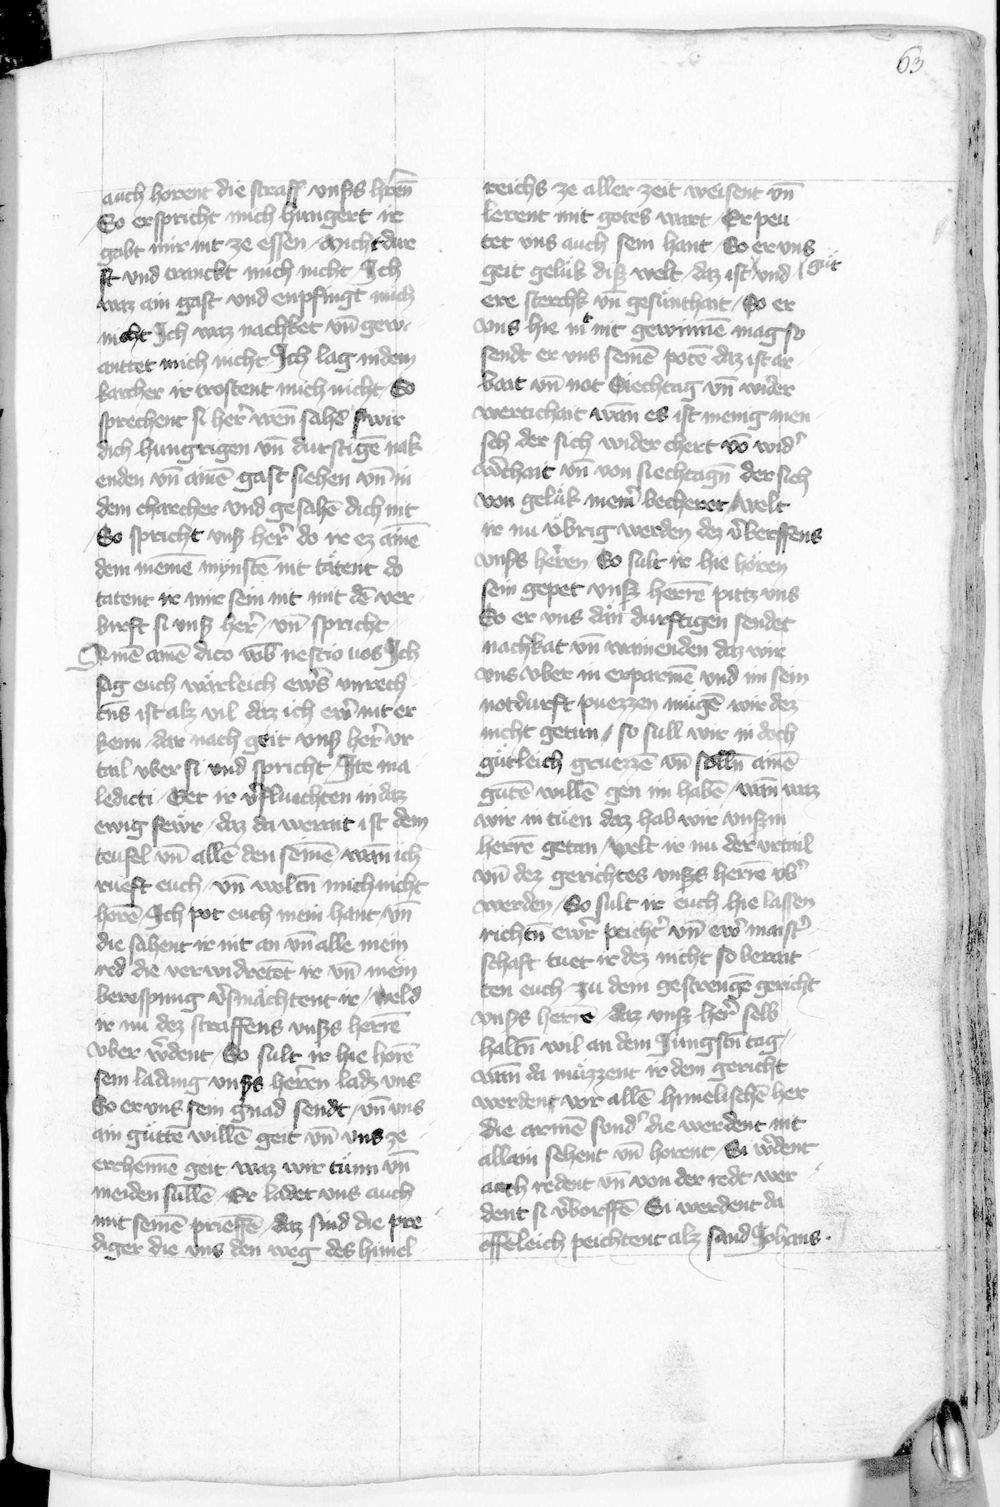 63
auch horent die straff unsers herren
So er spricht mich hungert ir
gabt mir nit ze essen / Mich dur
st und tranckt mich nicht / Ich
waz ain gast und enpfingt mich
nicht Ich waz nachket vn̄ gew
anttet mich nicht Ich lag in dem
karcher ir trostent mich nicht So
sprechent si her wen̄ sahe wir
dich hungrigen vn̄ durstigē nak
enden vn̄ ainē gast siehen vn̄ in
dem charcher und gesahē dich nit
So spricht unß her do ir ez ainē
dem meinē mynstē nit tätent do
tatent ir mir sein nit mit dē ver
birft si unß her / vn̄ spricht
Amē amē dico vob nescio uos Ich
sag euch wärleich ewrs unrech
tūs ist alz vil daz ich ewr nit er
kenn / dar nach geit unß her ur
tail uber si und spricht / Ite ma
ledicti / Get ir vfluechten in daz
ewig fewr / daz da werait ist dem
teufel vn̄ allē den seinē / wan ich
rueft euch / vn̄ woltn̄ mich nicht
horē / Ich pot euch mein hant vn̄
die sahent ir nit an vn̄ alle mein
red die verwidretēt ir vn̄ mein
berespung vsmächtent ir / Weld
ir nu dez straffens unßs herrē
uber wdent / So sult ir hie horē
sein ladung unßs herren ladz uns
So er uns sein gnad sendt / vn̄ uns
ain gūttē willē geit vn̄ uns ze
erchennē geit waz wir tūnn vn̄
meiden sullē / Er ladet uns auch
mit seinē prieffē / daz sind die pre
diger die uns den weg des himel
reichs ze aller zeit weisent vn̄
lerent mit gotes wart / Er peu
tet uns auch sein hant / So er uns
geit geluk diß welt / daz ist und / gut
ere sterchk vn̄ gesunthait / So er
uns hie mit nit gewinnē mag so
sendt er uns seinē potē daz ist ar
bait vn̄ not Siechtag vn̄ wider
wertichait wan es ist menig men
sch der sich wider chert vō wid
wchait vn̄ von siechtagn̄ der sich
von geluk niem becheret / welt
ir nu ubrig werden dez vberffens
unßs herren So sult ir hie hören
sein gepet unß herrē pittz uns
So er uns dan durftigen sendet
nachkat vn̄ wainenden daz wir
uns uber in erparmē und im sein
notdurft puezzen mugē wir dez
nicht getun / so sull wir in doch
gutleich gruezzē vn̄ solln̄ ainē
gutē willē gen im habē / wan waz
wir in tuen daz hab wir unßm
herrē getan / welt ir nu der urtail
vn̄ dez gerichtes unßs herrē ub
werden / So sult ir euch hie lassen
richtn̄ ewr peicht vn̄ ewr maist
schaft tuet ir dez nicht so berait
ten euch zu dem gestrengē gericht
unßs herrē / daz unß her selb
haltn̄ wil an dem Jungstn̄ tag /
wan da muzzent ir dem gericht
werdent vor allē himelischē her
die armē sond die werdent nit
allain sehent vn̄ horent / Si wdent
auch redent vn̄ von der redt wer
dent si vborffē / Si werdent da
offeleich peichtent alz sand Johans ·